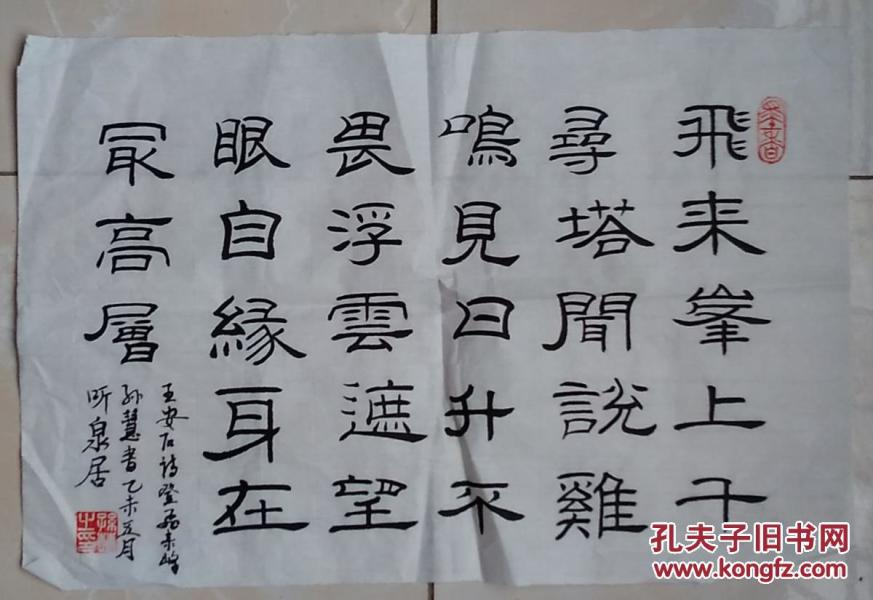 飛来峯上千
尋塔聞說雞
鳴見日升不
畏浮雲遮望
眼自緣身在
冣高層
王安石詩登飛来峰
孙慧書乙未五月
听泉居
孔夫子旧书网
www.kongfz.com